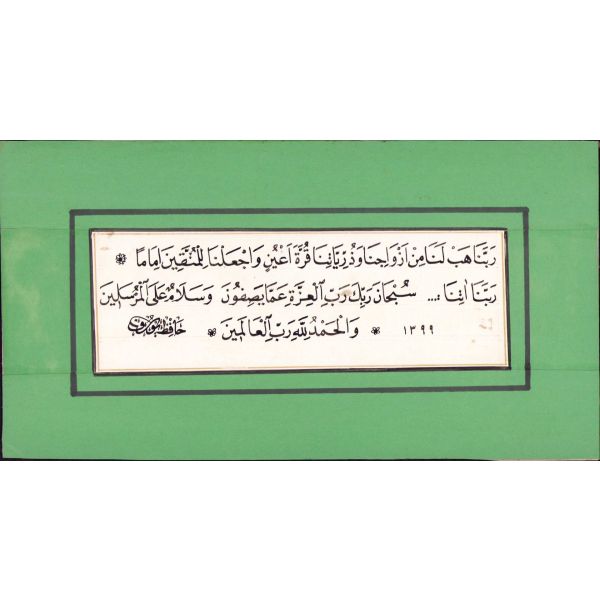 رَبَّنَا هَبْ لَنَا مِنْ اَزْوَاجِنَا وَذُرِّيَّاتِنَا قُرَّةَ اَعْيُنٍ وَاجْعَلْنَا لِلْمُتَّقِينَ اِمَامًا
رَبَّنَا اٰتِنَا .... سُبْحَانَ رَبِّكَ رَبِّ الْعِزَّةِ عَمَّا يَصِفُونَ وَسَلَامٌ عَلَى الْمُرْسَلِينَ
١٣٩٩ وَالْحَمْدُ لِلّٰهِ رَبِّ الْعَالَمِينَ حافظ